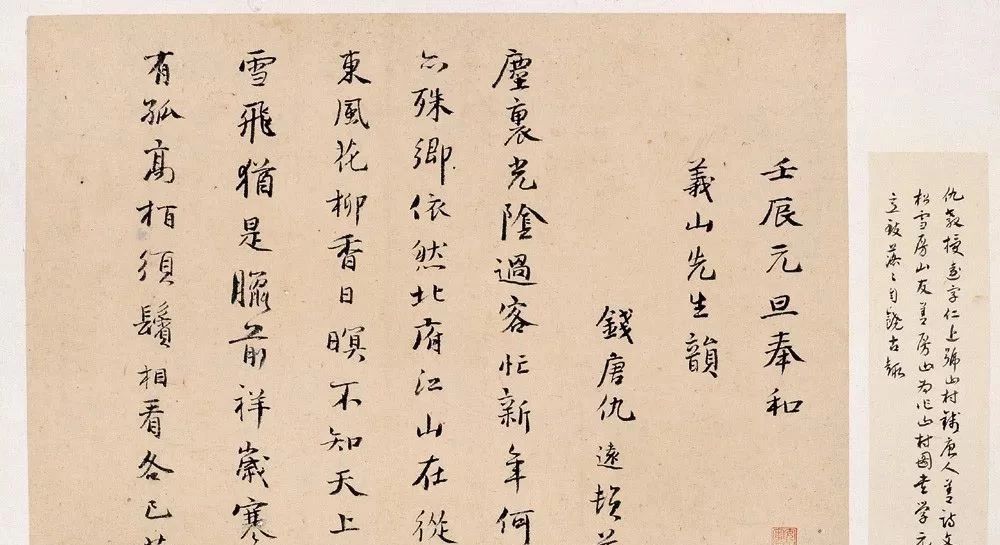 仇教授遠字仁上號山村錢唐人善詩文
松雪房山友善房山為作山村圖書學元
自饒古趣
壬辰元旦奉和
義山先生韻
錢唐仇遠頓
塵裏光陰過客忙新年何
亦殊鄉依然北府江山在從
東風花柳香日暝不知天上
雪飛猶是臘前祥歲寒
有孤高栢須鬢相看各已